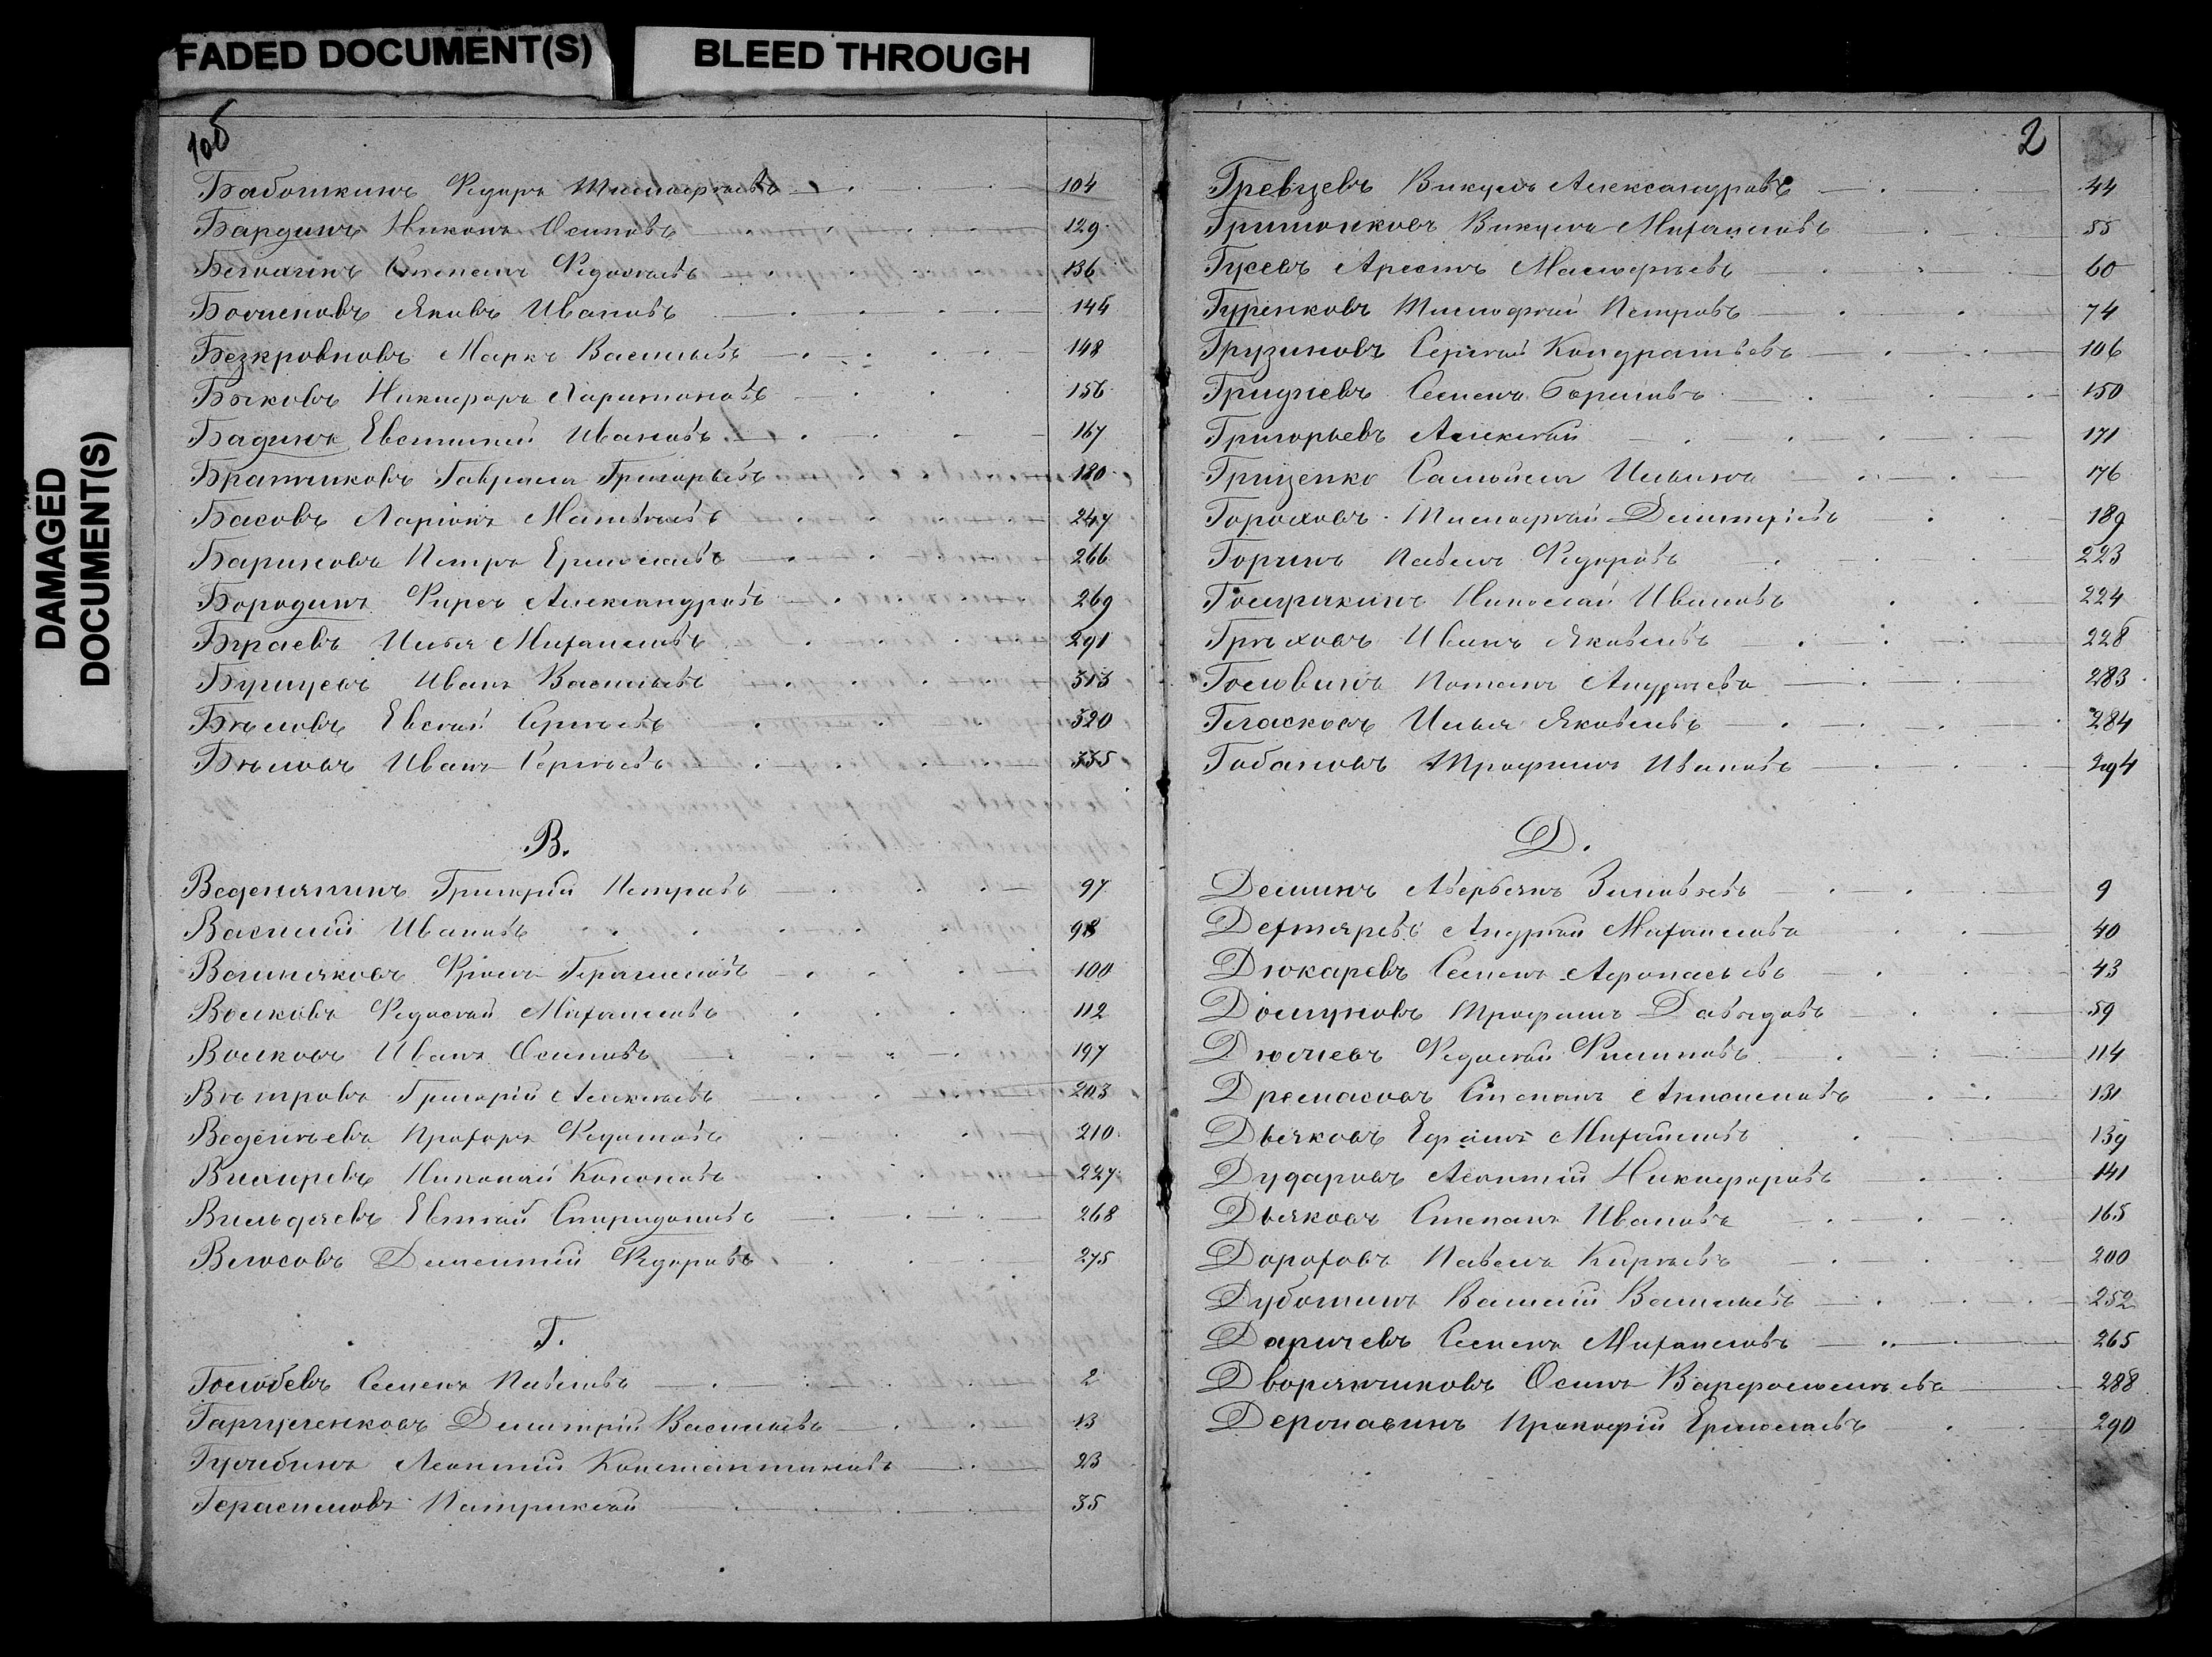 FADED DOCUMENT(S)
BLEED THROUGH
DAMAGED
DOCUMENT(S)
1об
Бабошкинъ Федоръ Тимофѣевъ 104
Бардинъ Никонъ Осиповъ 129
Степанъ Федосѣевъ 136
Яковъ Ивановъ 146
Безкровновъ Маркъ Васильевъ 148
Быковъ Никифоръ Ларионовъ 156
Бадинъ Евстигней Ивановъ 167
Братчиковъ Гаврила Григорьевъ 180
Басовъ Ларіонъ Матвѣевъ 247
Бариновъ Петръ Ермолаевъ 266
Бородинъ Фирсъ Александровъ 269
Бураевъ Илья Михайловъ 291
Иванъ Васильевъ 313
Бѣловъ Евсѣй Сергѣевъ 320
Бѣловъ Иванъ Сергѣевъ 335
В.
Веденяпинъ Григорій Петровъ 97
Василій Ивановъ 98
Фролъ Герасимовъ 100
Волковъ Федосѣй Михайловъ 112
Волковъ Иванъ Осиповъ 197
Вѣтровъ Григорій Алексѣевъ 203
Веденѣевъ Прохоръ Федотовъ 210
Вихиревъ Николай Кононовъ 227
Евтѣй Спиридоновъ 268
Дементій Федоровъ 275
Г.
Голюбевъ Семенъ Павловъ 2
Дмитрій Васильевъ 13
Леонтій Константиновъ 23
Герасимовъ Патрикѣй 35
2
Гревцевъ Викулъ Александровъ 44
Викулъ Михайловъ 55
Гусевъ Арестъ 60
Гуренковъ Тимофѣй Петровъ 74
Грузиновъ Сергѣй Кондратьевъ 106
Гридневъ Семенъ Борисовъ 150
Григорьевъ Алексѣй 171
Гриценко Самойла Ильинъ 176
Гороховъ Тимофѣй Дмитріевъ 189
Горинъ Павелъ Федоровъ 223
Николай Ивановъ 224
Грѣховъ Иванъ Яковлевъ 228
Головинъ Потапъ Андреевъ 283
Гласковъ Илья Яковлевъ 284
Габановъ Трофимъ Ивановъ 294
Д.
Деминъ Аверьянъ Зиновьевъ 9
Дехтяревъ Андрей Михайловъ 40
Дюкаревъ Семенъ Афонасьевъ 43
Долгуновъ Трофимъ Давыдовъ 59
Федосѣй Филиповъ 114
Дремасовъ Степанъ 131
Дьяковъ Ефимъ Михайловъ 139
Дударовъ Леонтій Никифоровъ 141
Дьяковъ Степанъ Ивановъ 165
Дороховъ Павелъ Кирѣевъ 200
Василій Васильевъ 252
Даричевъ Семенъ Михайловъ 265
Дворянчиковъ Осипъ Варфоломѣевъ 288
Прокофій Ермолаевъ 290